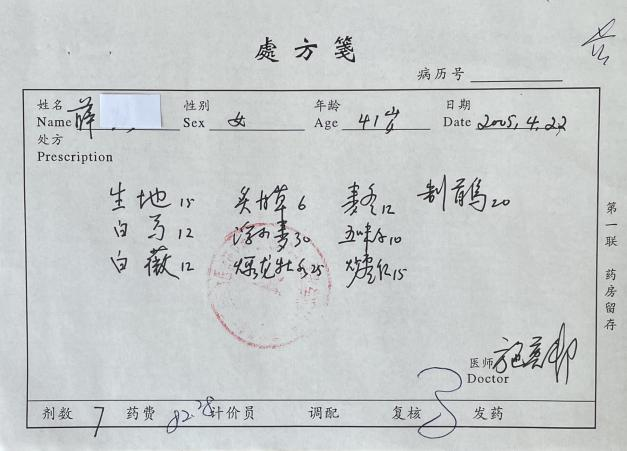 處方箋
病历号
姓名 性别 年龄 日期
Name 薛 Sex 女 Age 41岁 Date 2005.4.22
处方
Prescription
生地15 炙甘草6 麦冬12 制首乌20
白芍12 浮小麦30 五味子10
白薇12 煅龙牡各25 枣仁15
第一联 药房留存
医师
Doctor
剂数 7 药费 82.28 计价员 调配 复核 发药